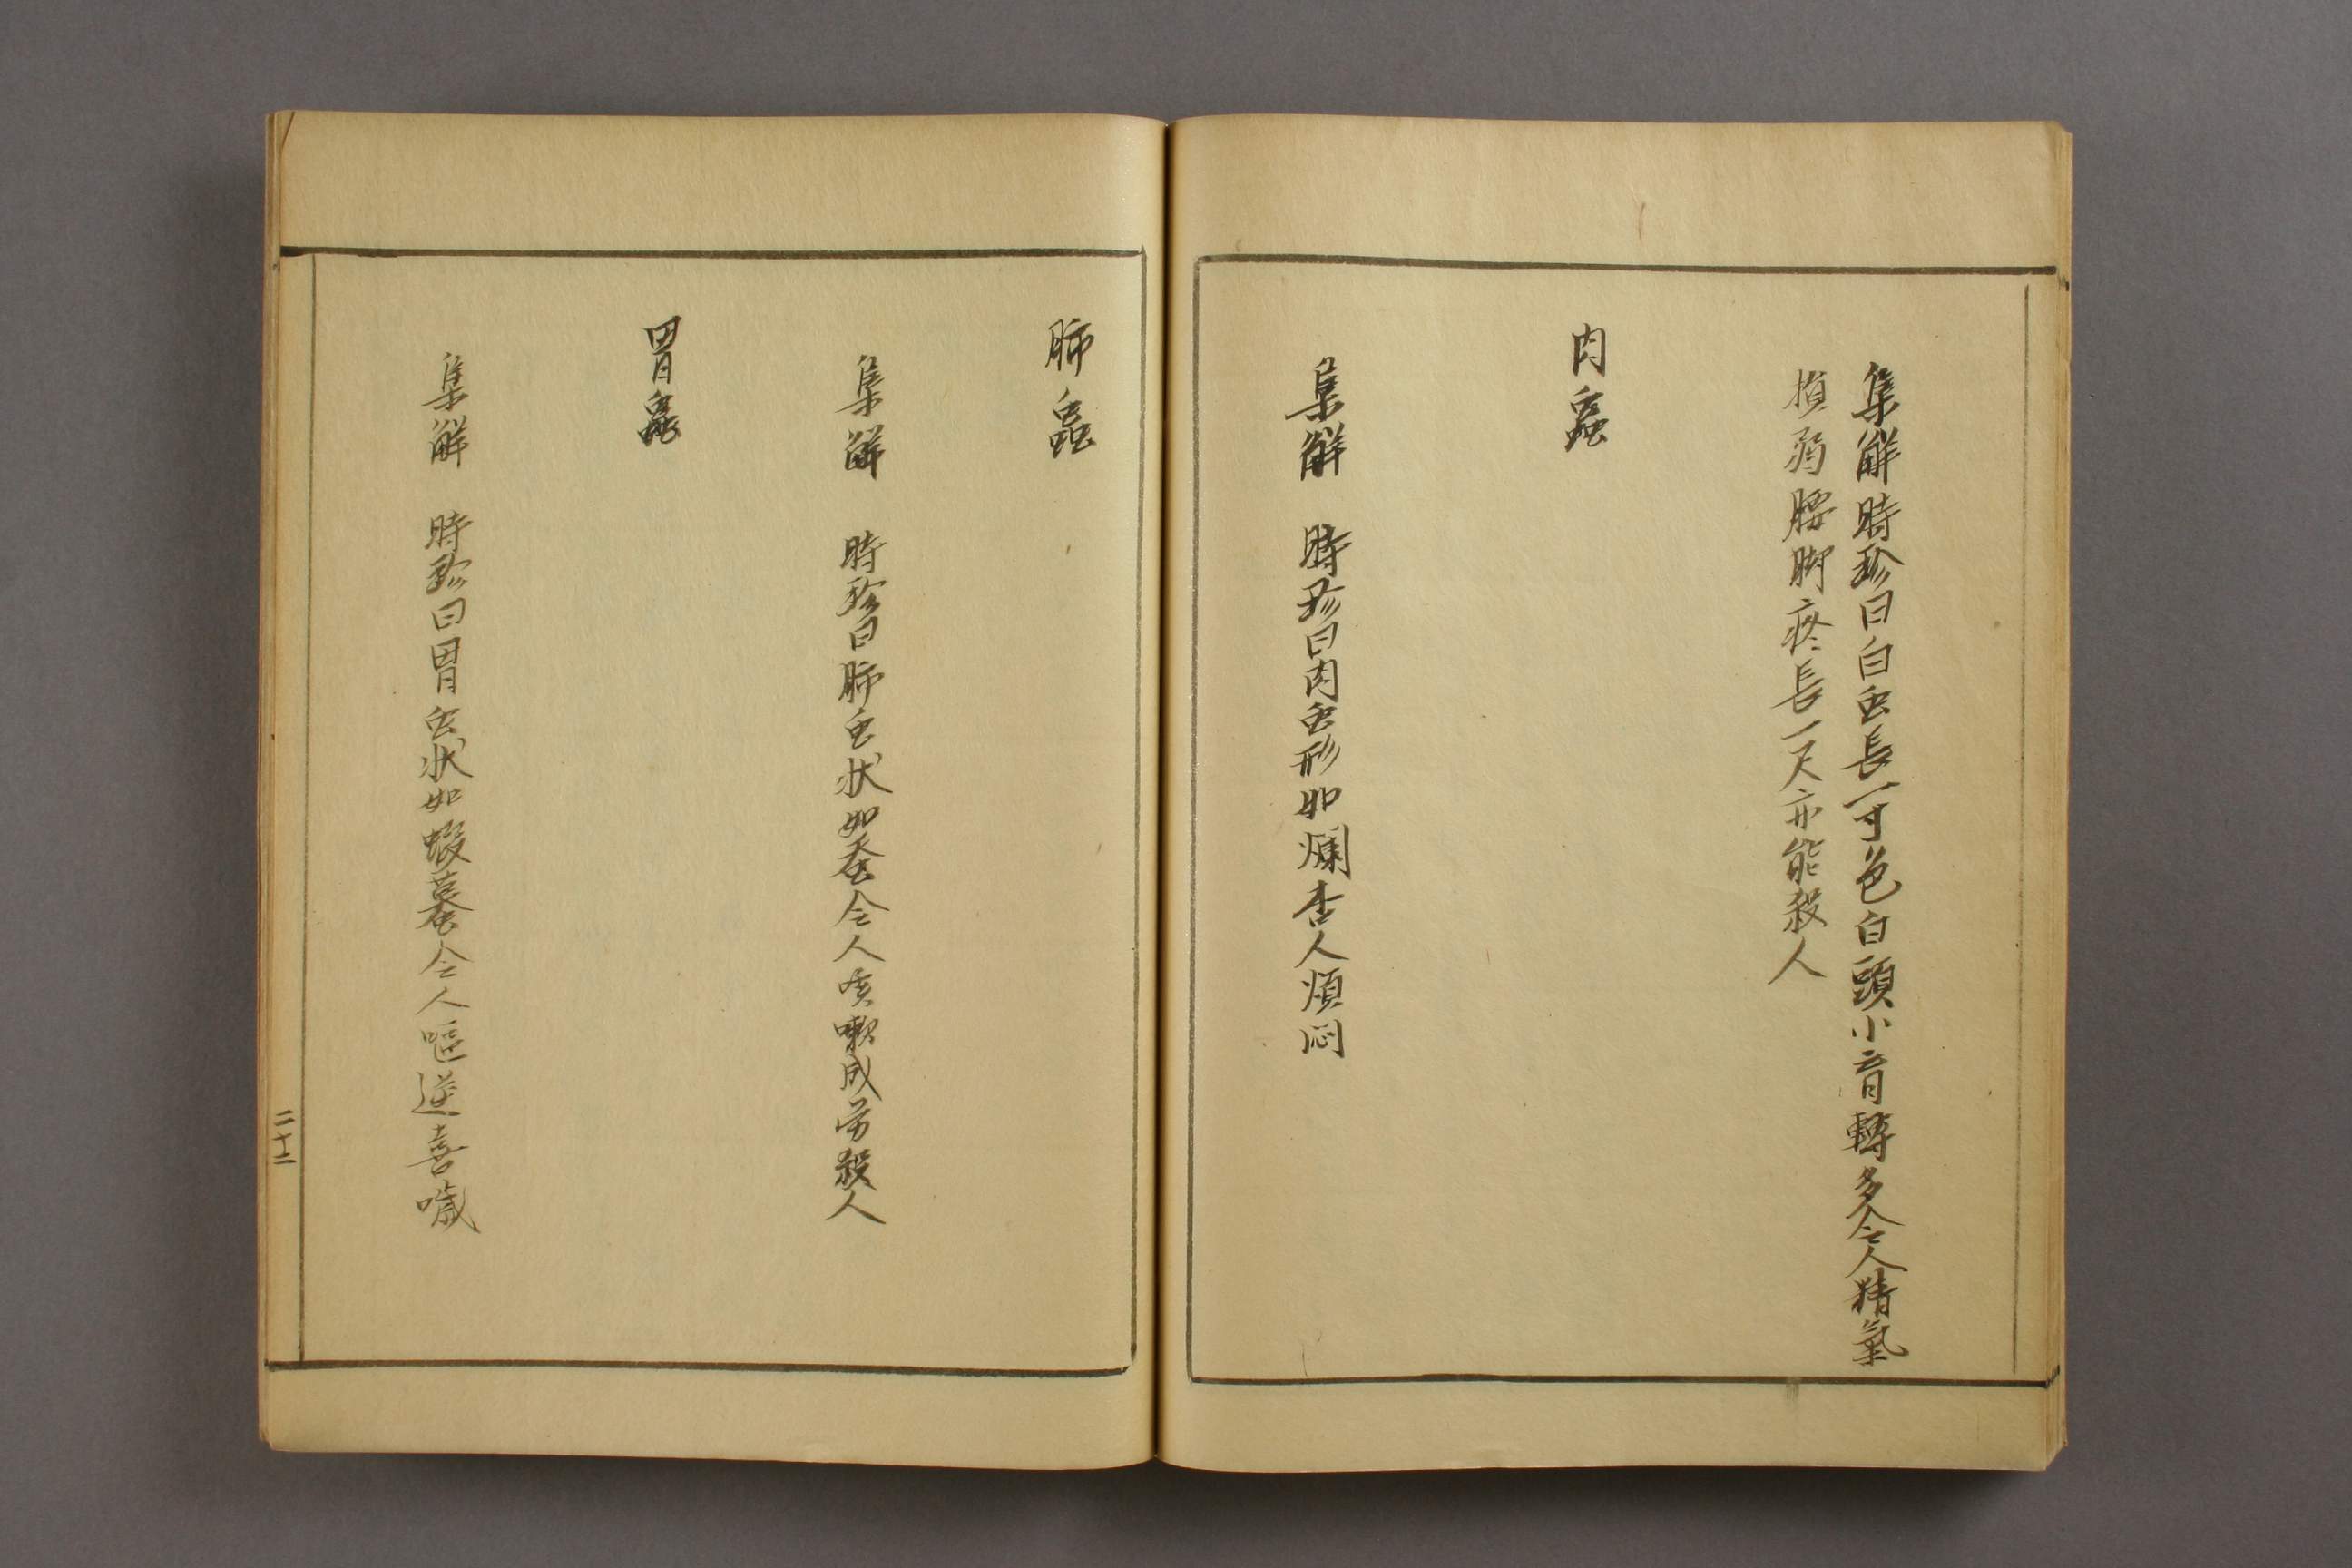 集解時珍曰白虫長一寸色白頭小育轉多令人精氣
損弱腰脚疼長一尺亦能殺人
肉蟲
集解 時珍曰肉虫形如爛杏人煩悶
肺蟲
集解 時珍曰肺虫状如蚕令人咳嗽成劳殺人
胃蟲
集解 時珍曰胃虫状如蝦蟇令人嘔逆喜噦
二十二